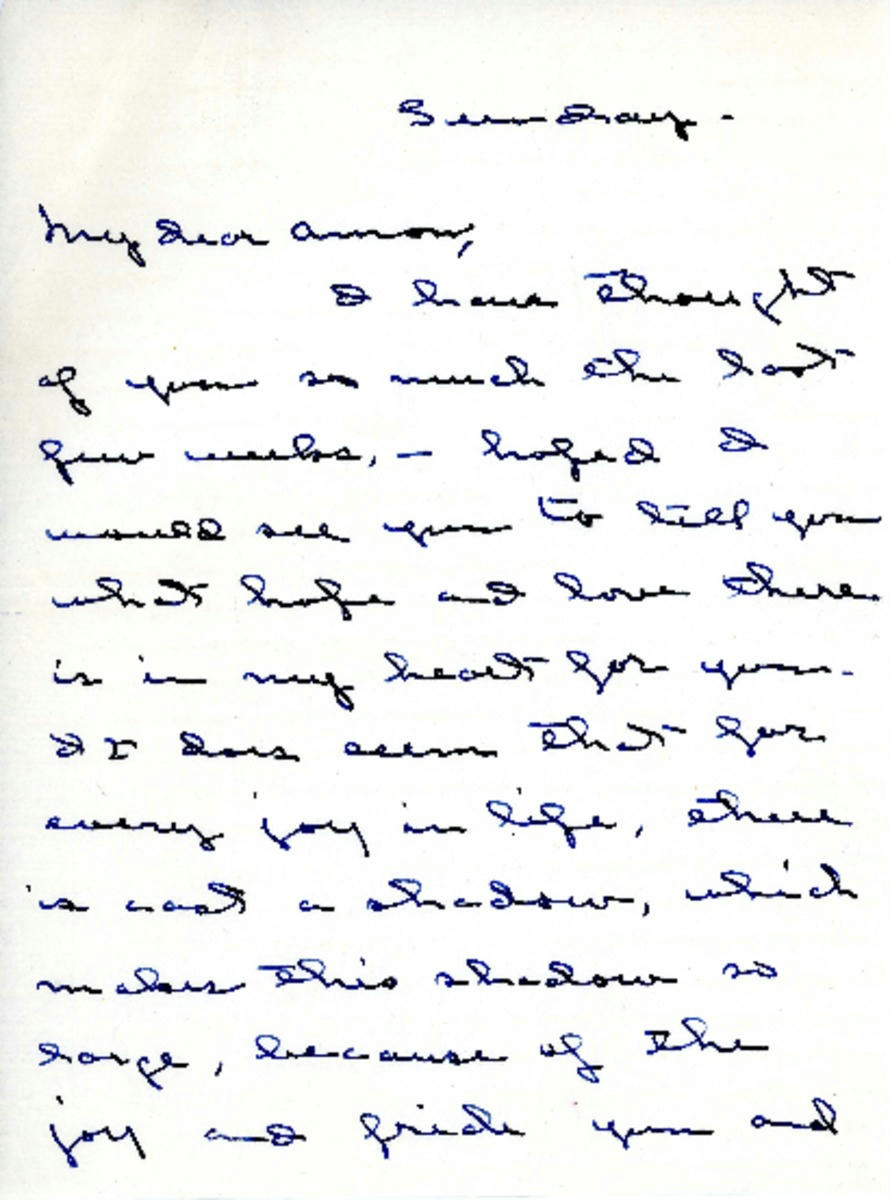 Sunday -
My dear Amon,
I have thought
of you so much the last
few weeks, - hoped I
would see you to tell you
what hope and love there
is in my heart for you.
It does seem that for
every joy in life, there
is cast a shadow, which
makes this shadow so
large, because of the
joy and pride you and